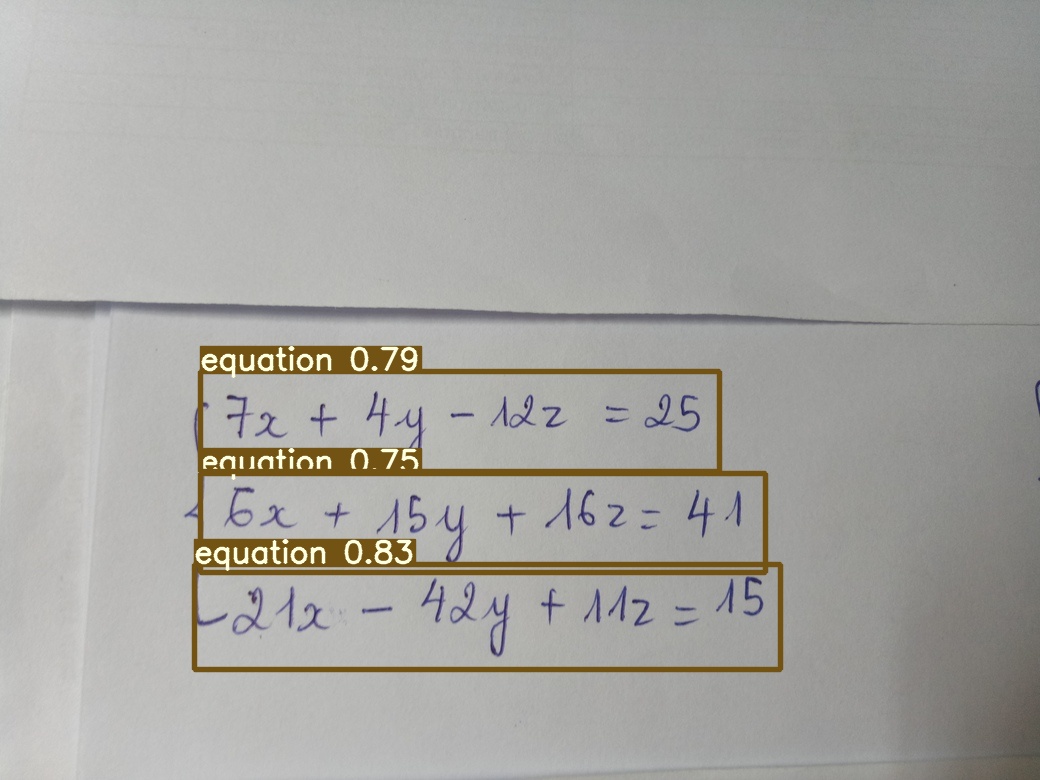 equation 0.79
7x + 4y - 12z = 25
equation 0.75
6x + 15y + 16z = 41
equation 0.83
21x - 42y + 11z = 15